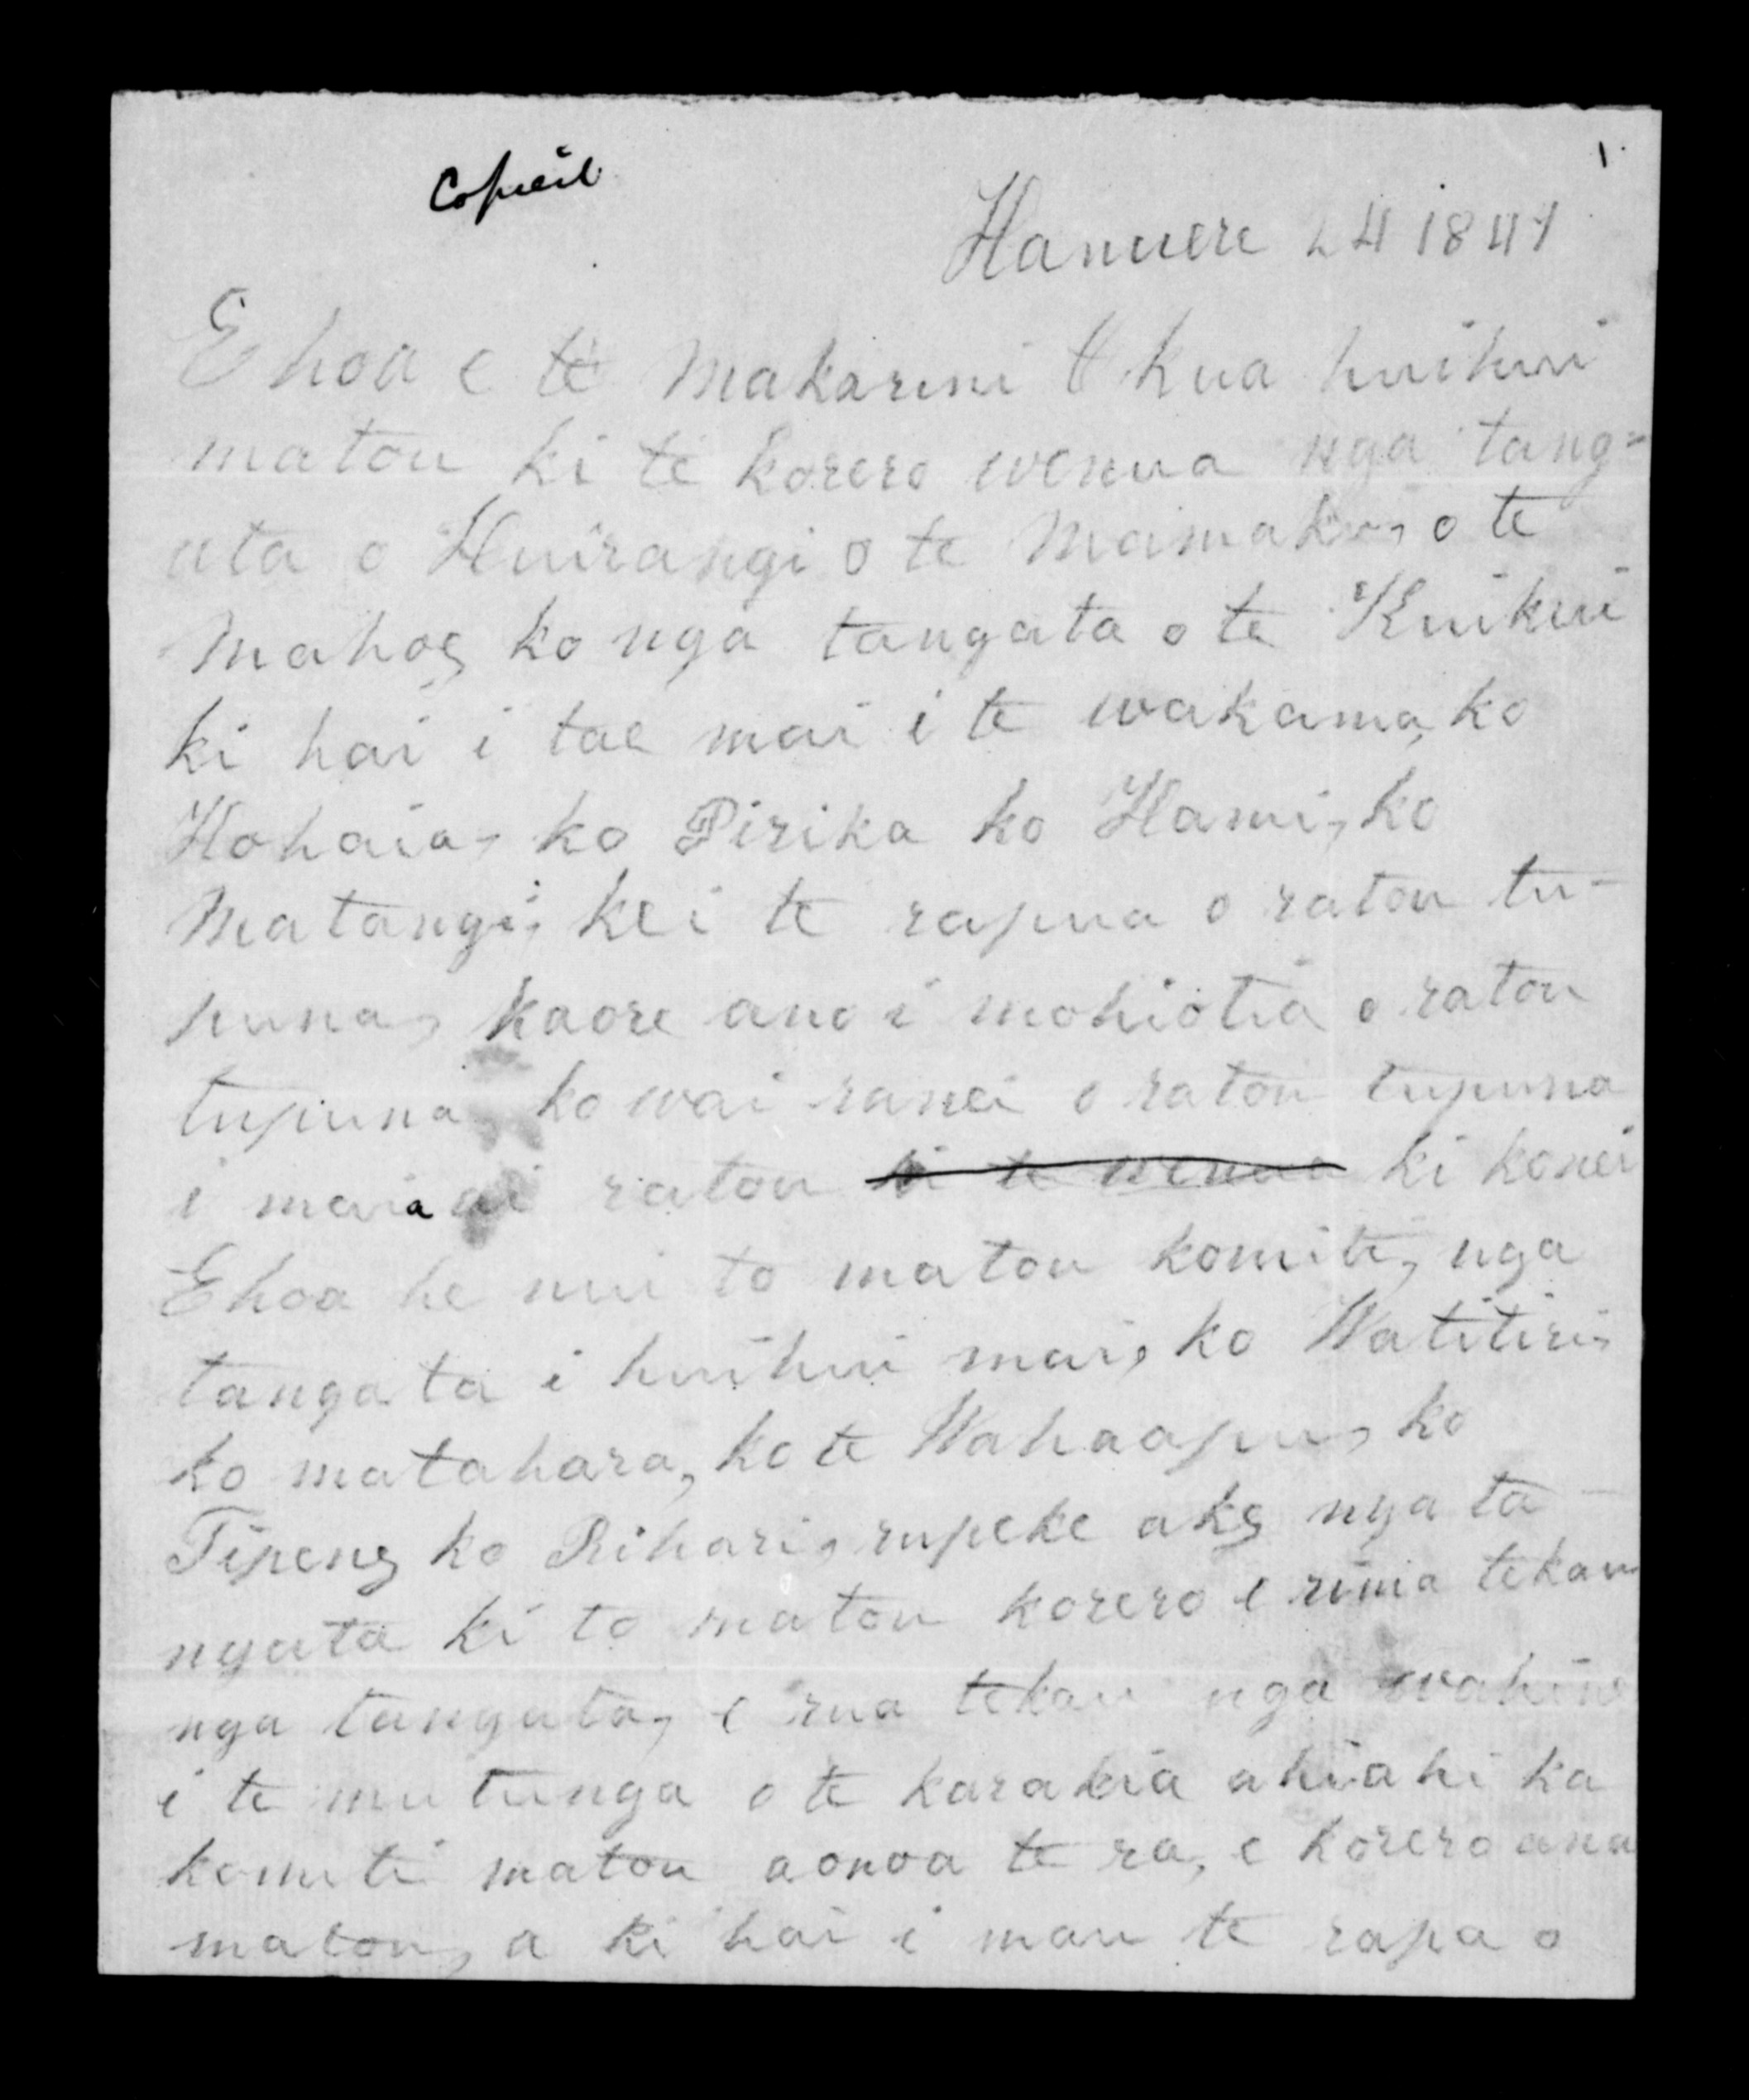 Copied
1.
Hanuere 24 1841
E hoa e te Makarini kua huihui
matou ki te korero wenua nga tang=
ata o Huirangi o te Mamaku, o te
Mahoe, ko nga tangata o te Kuikui
ki hai i tae mai i te wakama, ko
Hohaia, ko Pirika ko Hami, ko
Matangi, kei te rapua o ratou tu-
puna, kaore ano i mohiotia o ratou
tupuna, ko wai ranei o ratou tupuna
i maria ai ratou ki te wenua ki konei
E hoa he nui to matou komiti, nga
tangata i huihui mai, ko Watitiri,
ko matahara, ko te Wahaapu, ko
Tipene, ko Rihari, rupeke ake nga ta-
ngata ki to matou korero e rima tekau
nga tangata, e rua tekau nga wahine
i te mutunga o te karakia ahiahi ka
komiti matou aonoa te ra, e korero ana
matou, a ki hai i mau te rapa o